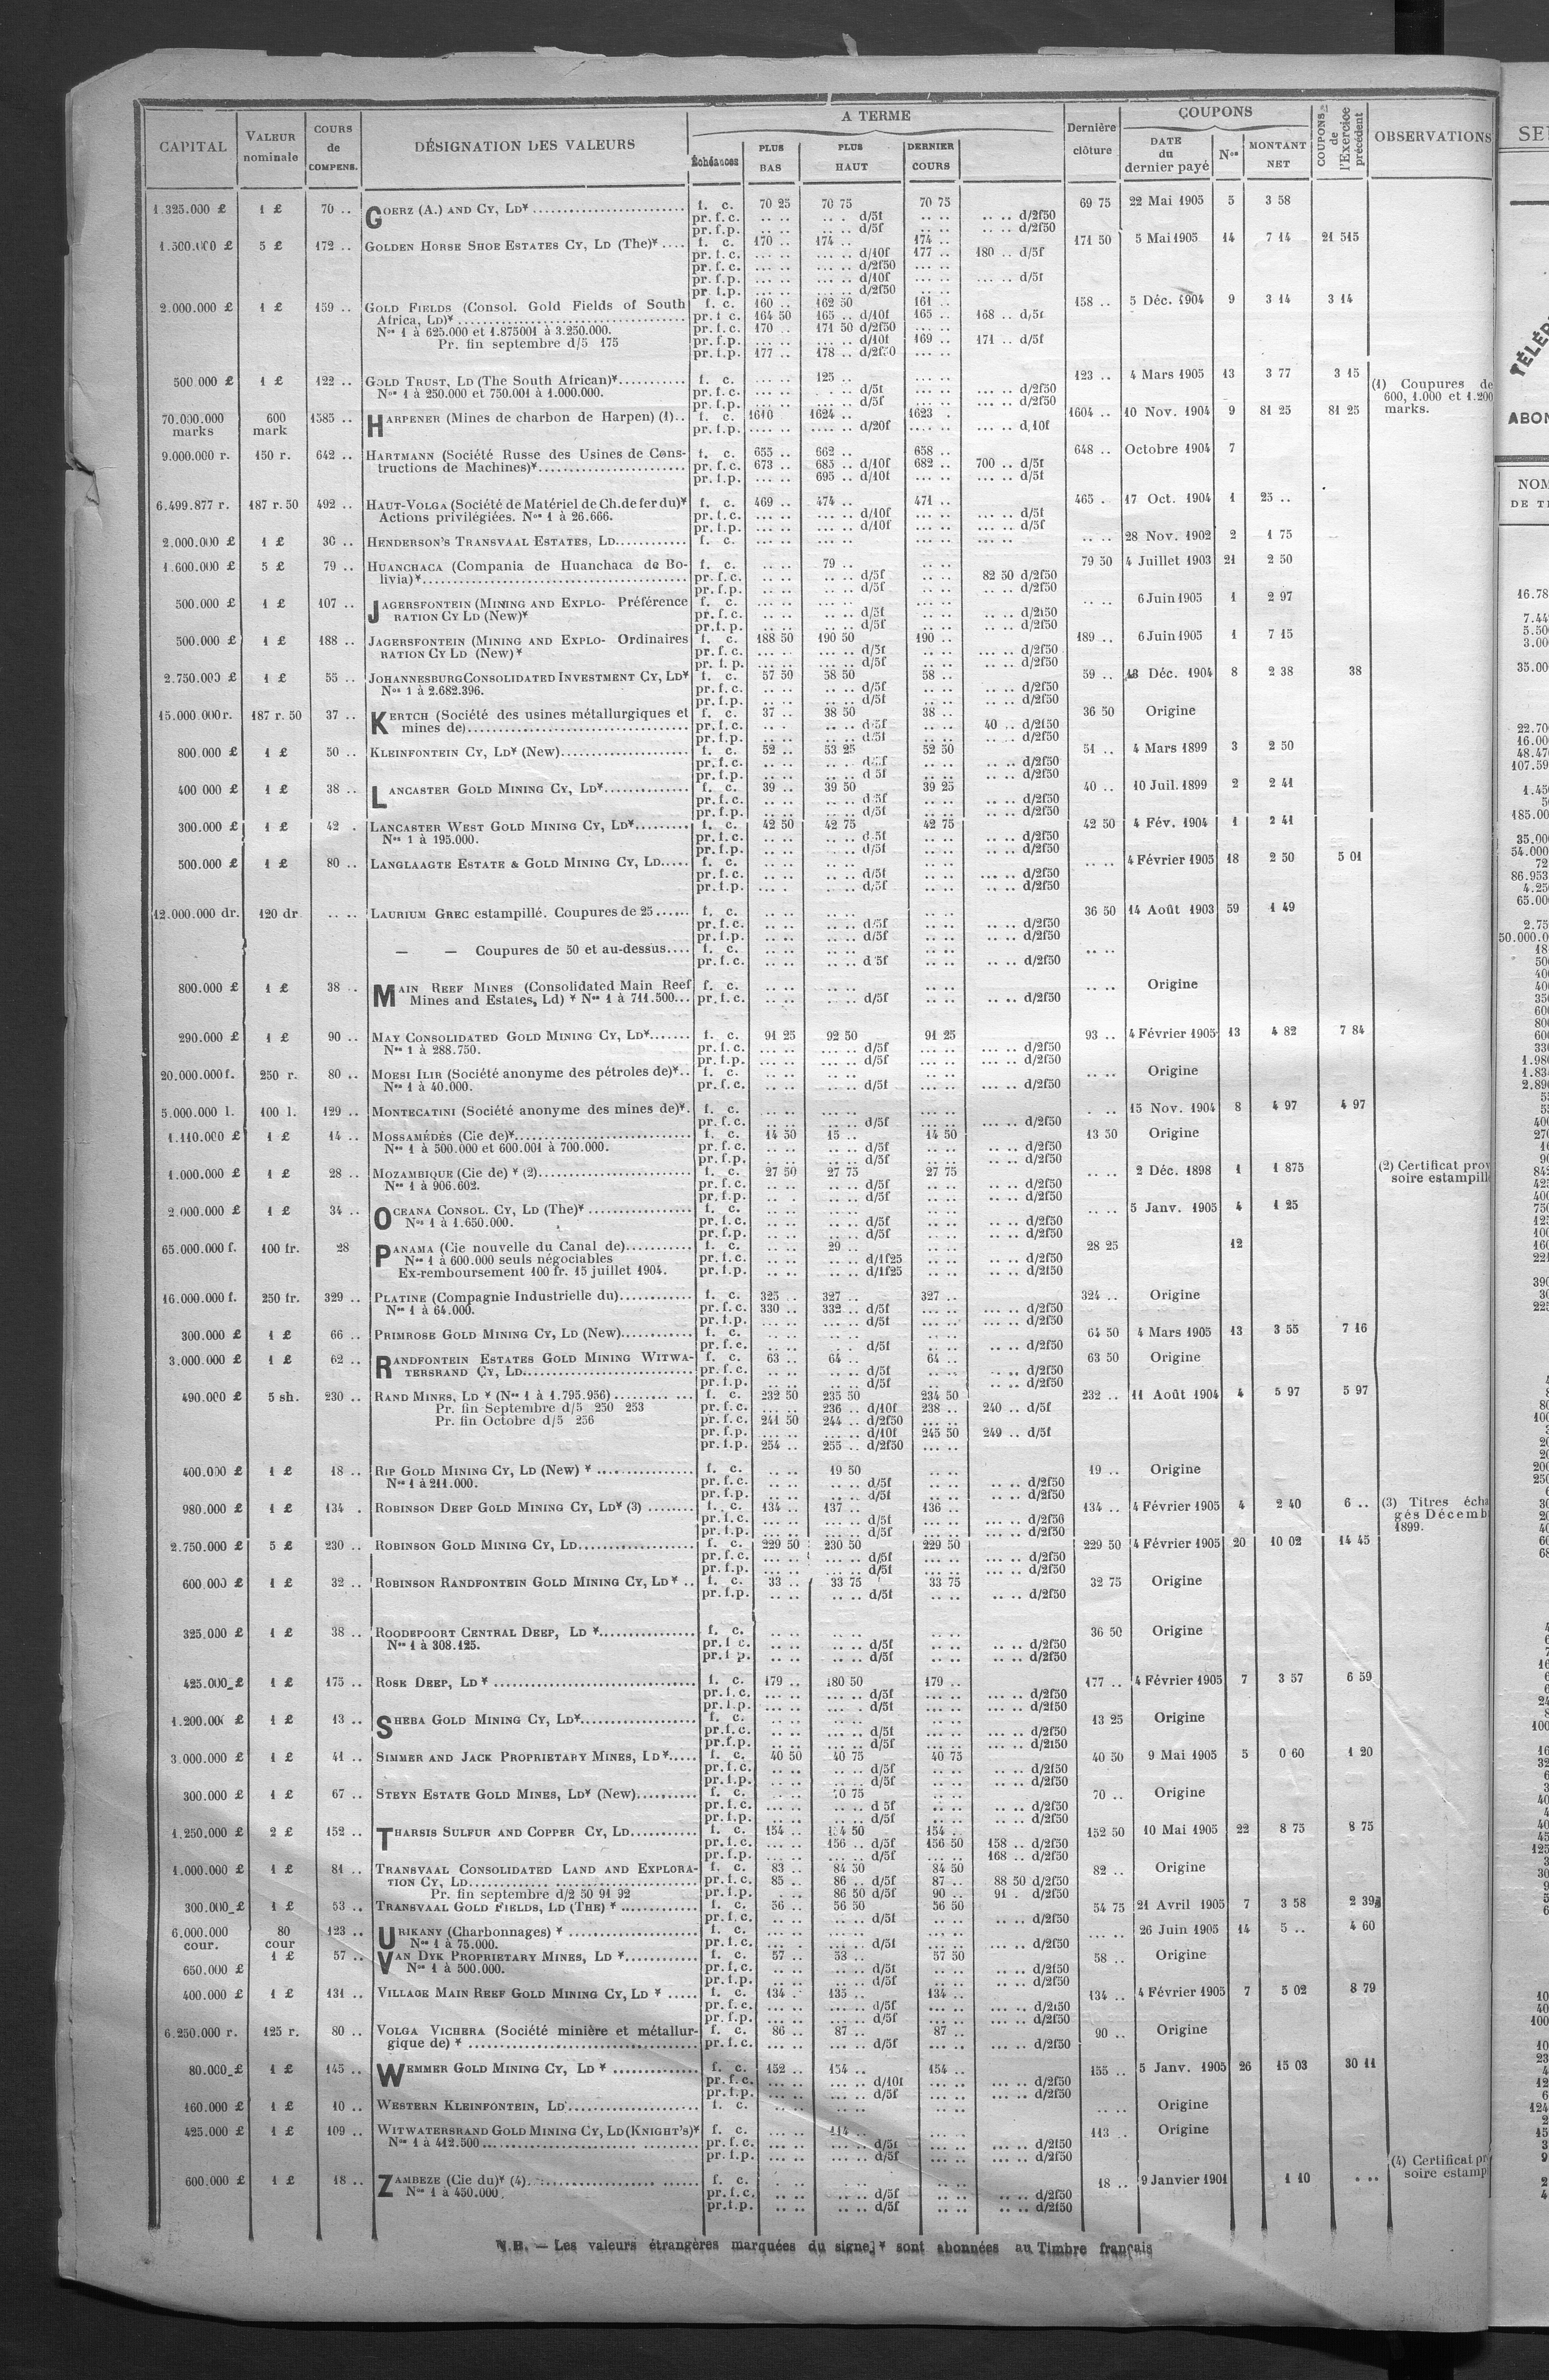 CAPITAL | VALEUR nominale | COURS de COMPENS. | DÉSIGNATION DES VALEURS | A TERME | Dernière clôture | COUPONS | COUPONS de l'Exercice précédent | OBSERVATIONS
Échéances | PLUS BAS | PLUS HAUT | DERNIER COURS | DATE du dernier payé | Nos | MONTANT NET
1.325.000 £ | 1 £ | 70 .. | GOERZ (A.) AND CY, LD* | f. c. | 70 25 | 70 75 | 70 75 | 69 75 | 22 Mai 1905 | 5 | 3 58
pr. f.c. | .. .. | .. . d/5f | .. .. | .. .. d/2f50
pr. f.p. | .. .. | .. .. d/5f | .. .. | .. .. d/2f50
1.500.000 £ | 5 £ | 172 .. | GOLDEN HORSE SHOE ESTATES CY, LD (The)* | f. c. | 170 .. | 174 .. | 174 .. | 171 50 | 5 Mai 1905 | 14 | 7 14 | 21 515
pr. f.c. | ... .. | ... .. d/10f | 177 .. | 180 .. d/5f
pr. f.c. | ... .. | ... .. d/2f50 | ... ..
pr. f.p. | ... .. | ... .. d/10f | ... .. | ... .. d/5f
pr. f.p. | ... .. | ... .. d/2f50 | ... ..
2.000.000 £ | 1 £ | 159 .. | GOLD FIELDS (Consol. Gold Fields of South | f. c. | 160 .. | 162 50 | 161 .. | 158 .. | 5 Déc. 1904 | 9 | 3 14 | 3 14
Africa, LD)* | pr. f.c. | 164 50 | 165 .. d/10f | 165 .. | 168 .. d/5f
Nos 1 à 625.000 et 1.875001 à 3.250.000. | pr. f.c. | 170 .. | 171 50 d/2f50 | ... ..
Pr. fin septembre d/5 175 | pr. f.p. | ... .. | ... .. d/10f | 169 .. | 171 .. d/5f
pr. f.p. | 177 .. | 178 .. d/2f50 | ... ..
500.000 £ | 1 £ | 122 .. | GOLD TRUST, LD (The South African)* | f. c. | ... .. | 125 .. | 123 .. | 4 Mars 1905 | 13 | 3 77 | 3 15 | (1) Coupures de
Nos 1 à 250.000 et 750.001 à 1.000.000. | pr. f.c. | ... .. | d/5f | ... .. d/2f50 | 600, 1.000 et 1.200
pr. f.p. | ... .. | d/5f | ... .. d/2f50 | marks.
70.000.000 marks | 600 mark | 1585 .. | HARPENER (Mines de charbon de Harpen) (1).. | f. c. | 1610 | 1624 .. | 1623 . | 1604 .. | 10 Nov. 1904 | 9 | 81 25 | 81 25
pr. f.p. | .... .. | .... .. d/20f | .... .. | ... .. d.10f
9.000.000 r. | 150 r. | 642 .. | HARTMANN (Société Russe des Usines de Cons- | f. c. | 655 .. | 662 .. | 658 .. | 648 .. | Octobre 1904 | 7
tructions de Machines)* | pr. f.c. | 673 .. | 685 .. d/10f | 682 .. | 700 .. d/5f
pr. f.p. | 695 .. d/10f | ... .. | ... .. d/5f
6.499.877 r. | 187 r. 50 | 492 .. | HAUT-VOLGA (Société de Matériel de Ch. de fer du)* | f. c. | 469 .. | 474 .. | 471 .. | 465 . | 17 Oct. 1904 | 1 | 25 ..
Actions privilégiées. Nos 1 à 26.666. | pr. f.c. | ... .. | ... .. d/10f | ... .. | ... .. d/5f
pr. f.p. | ... .. | ... .. d/10f | ... .. | ... .. d/5f
2.000.000 £ | 1 £ | 30 .. | HENDERSON'S TRANSVAAL ESTATES, LD | f. c. | ... .. | ... .. | ... .. | .. .. | 28 Nov. 1902 | 2 | 1 75
1.600.000 £ | 5 £ | 79 .. | HUANCHACA (Compania de Huanchaca de Bo- | f. c. | .. .. | 79 .. | .. .. | 79 50 | 4 Juillet 1903 | 21 | 2 50
livia)* | pr. f.c. | .. .. | .. .. d/5f | .. .. | 82 50 d/2f50
pr. f.p. | .. .. | .. .. d/5f | .. .. | .. .. d/2f50
500.000 £ | 1 £ | 107 .. | JAGERSFONTEIN (MINING AND EXPLO- Préférence | f. c. | ... .. | ... .. | .. .. | .. .. | 6 Juin 1905 | 1 | 2 97
RATION CY LD (New)* | pr. f.c. | ... .. | .. .. d/5f | .. .. | .. .. d/2f50
pr. f.p. | ... .. | .. .. d/5f | .. .. | .. .. d/2f50
500.000 £ | 1 £ | 188 .. | JAGERSFONTEIN (MINING AND EXPLO- Ordinaires | f. c. | 188 50 | 190 50 | 190 .. | 189 .. | 6 Juin 1905 | 1 | 7 15
RATION CY LD (New)* | pr. f.c. | ... .. | ... .. d/5f | .. .. | ... .. d/2f50
pr. f. p. | ... .. | ... .. d/5f | .. .. | ... .. d/2f50
2.750.000 £ | 1 £ | 55 .. | JOHANNESBURG CONSOLIDATED INVESTMENT CY, LD* | f. c. | 57 50 | 58 50 | 58 .. | 59 .. | 13 Déc. 1904 | 8 | 2 38 | 38
Nos 1 à 2.682.396. | pr. f.c. | .. .. | .. .. d/5f | .. .. | .. .. d/2f50
pr. f.p. | .. .. | .. .. d/5f | .. .. | .. .. d/2f50
15.000.000 r. | 187 r. 50 | 37 .. | KERTCH (Société des usines métallurgiques et | f. c. | 37 .. | 38 50 | 38 .. | 36 50 | Origine
mines de) | pr. f.c. | .. .. | .. .. d/5f | .. .. | 40 .. d/2f50
pr. f.p. | .. .. | .. .. d/5f | .. .. | .. .. d/2f50
800.000 £ | 1 £ | 50 .. | KLEINFONTEIN CY, LD* (New) | f. c. | 52 .. | 53 25 | 52 50 | 51 .. | 4 Mars 1899 | 3 | 2 50
pr. f.c. | .. .. | .. .. d/5f | .. .. | .. .. d/2f50
pr. f.p. | .. .. | .. .. d 5f | .. .. | .. .. d/2f50
400 000 £ | 1 £ | 38 .. | LANCASTER GOLD MINING CY, LD* | f. c. | 39 .. | 39 50 | 39 25 | 40 .. | 10 Juil. 1899 | 2 | 2 41
pr. f.c. | .. .. | .. .. d 5f | .. .. | .. .. d/2f50
pr. f.p. | .. .. | .. .. d/5f | .. .. | .. .. d/2f50
300.000 £ | 1 £ | 42 . | LANCASTER WEST GOLD MINING CY, LD* | f. c. | 42 50 | 42 75 | 42 75 | 42 50 | 4 Fév. 1904 | 1 | 2 41
Nos 1 à 195.000. | pr. f.c. | .. .. | .. .. d.5f | .. .. | .. .. d/2f50
pr. f.p. | .. .. | .. .. d/5f | .. .. | .. .. d/2f50
500.000 £ | 1 £ | 80 .. | LANGLAAGTE ESTATE & GOLD MINING CY, LD | f. c. | .. .. | .. .. | .. .. | .. .. | 4 Février 1905 | 18 | 2 50 | 5 01
pr. f.c. | .. .. | .. .. d/5f | .. .. | ... .. d/2f50
pr. f.p. | ... . | .. .. d/5f | .. .. | .. .. d/2f50
12.000.000 dr. | 120 dr | .. .. | LAURIUM GREC estampillé. Coupures de 25 | f. c. | .. .. | .. .. | .. .. | 36 50 | 14 Août 1903 | 59 | 1 49
pr. f.c. | .. .. | .. .. d/5f | .. .. | .. .. d/2f50
pr. f.p. | .. .. | .. .. d/5f | .. .. | .. .. d/2f50
— — Coupures de 50 et au-dessus | f. c. | .. .. | .. .. | .. .. | .. ..
pr. f.c. | .. .. | .. .. d 5f | .. .. | .. .. d/2f50
800.000 £ | 1 £ | 38 .. | MAIN REEF MINES (Consolidated Main Reef | f. c. | .. .. | .. .. | .. .. | .. .. | Origine
Mines and Estates, Ld) * Nos 1 à 711.500 | pr. f.c. | .. .. | .. .. d/5f | .. .. | .. .. d/2f50
290.000 £ | 1 £ | 90 .. | MAY CONSOLIDATED GOLD MINING CY, LD* | f. c. | 91 25 | 92 50 | 91 25 | 93 .. | 4 Février 1905 | 13 | 4 82 | 7 84
Nos 1 à 288.750. | pr. f.c. | ... .. | ... .. d/5f | ... .. | ... .. d/2f50
pr. f.p. | ... .. | ... .. d/5f | ... .. | ... .. d/2f50
20.000.000 f. | 250 r. | 80 .. | MOESI ILIR (Société anonyme des pétroles de)* | f. c. | ... .. | .. .. | ... .. | .. .. | Origine
Nos 1 à 40.000. | pr. f.c. | ... .. | .. .. d/5f | ... .. | ... .. d/2f50
5.000.000 l. | 100 l. | 129 .. | MONTECATINI (Société anonyme des mines de)* | f. c. | ... .. | ... .. | ... .. | . .. | 15 Nov. 1904 | 8 | 4 97 | 4 97
pr. f.c. | ... .. | ... .. d/5f | ... .. | ... .. d/2f50
1.110.000 £ | 1 £ | 14 .. | MOSSAMÉDÈS (Cie de)* | f. c. | 14 50 | 15 .. | 14 50 | 13 50 | Origine
Nos 1 à 500.000 et 600.001 à 700.000. | pr. f.c. | .. .. | .. .. d/5f | .. .. | .. .. d/2f50
pr. f.p. | .. .. | .. .. d/5f | .. .. | .. .. d/2f50
1.000.000 £ | 1 £ | 28 .. | MOZAMBIQUE (Cie de) * (2) | f. c. | 27 50 | 27 75 | 27 75 | .. .. | 2 Déc. 1898 | 1 | 1 875 | (2) Certificat prov
Nos 1 à 906.602. | pr. f.c. | .. .. | .. .. d/5f | .. .. | .. .. d/2f50 | soire estampill
pr. f.p. | .. . | .. .. d/5f | .. .. | .. .. d/2f50
2.000.000 £ | 1 £ | 34 .. | OCEANA CONSOL. CY, LD (The)* | f. c. | .. .. | .. .. | .. .. | .. .. | 5 Janv. 1905 | 4 | 1 25
Nos 1 à 1.650.000. | pr. f.c. | .. .. | .. .. d/5f | .. .. | .. .. d/2f50
pr. f.p. | .. .. | .. .. d/5f | .. .. | .. .. d/2f50
65.000.000 f. | 100 fr. | 28 | PANAMA (Cie nouvelle du Canal de) | f. c. | .. .. | 29 .. | .. .. | 28 25 | 12
Nos 1 à 600.000 seuls négociables | pr. f.c. | .. .. | .. .. d/1f25 | .. .. | .. .. d/2f50
Ex-remboursement 100 fr. 15 juillet 1904. | pr. f.p. | .. .. | .. .. d/1f25 | .. .. | .. .. d/2f50
16.000.000 f. | 250 fr. | 329 .. | PLATINE (Compagnie Industrielle du) | f. c. | 325 .. | 327 .. | 327 .. | 324 .. | Origine
Nos 1 à 64.000. | pr. f.c. | 330 .. | 332 .. d/5f | ... .. | ... .. d/2f50
pr. f.p. | ... .. | ... .. d/5f | ... .. | ... .. d/2f50
300.000 £ | 1 £ | 66 .. | PRIMROSE GOLD MINING CY, LD (New) | f. c. | .. .. | .. .. | .. .. | 64 50 | 4 Mars 1905 | 13 | 3 55 | 7 16
pr. f.c. | .. .. | .. . d/5f | .. .. | .. .. d/2f50
3.000.000 £ | 1 £ | 62 .. | RANDFONTEIN ESTATES GOLD MINING WITWA- | f. c. | 63 .. | 64 .. | 64 .. | 63 50 | Origine
TERSRAND CY, LD | pr. f.c. | .. .. | .. .. d/5f | .. .. | .. .. d/2f50
pr. f.p. | .. .. | .. .. d/5f | .. .. | .. .. d/2f50
490.000 £ | 5 sh. | 230 .. | RAND MINES, LD * (Nos 1 à 1.795.956) | f. c. | 232 50 | 235 50 | 234 50 | 232 .. | 11 Août 1904 | 4 | 5 97 | 5 97
Pr. fin Septembre d/5 250 253 | pr. f.c. | ... .. | 236 .. d/10f | 238 .. | 240 .. d/5f
Pr. fin Octobre d/5 256 | pr. f.c. | 241 50 | 244 .. d/2f50 | ... ..
pr. f.p. | ... .. | ... .. d/10f | 245 50 | 249 .. d/5f
pr. f.p. | 254 .. | 255 .. d/2f50 | ... ..
400.000 £ | 1 £ | 18 .. | RIP GOLD MINING CY, LD (New) * | f. c. | .. .. | 19 50 | .. .. | 19 .. | Origine
Nos 1 à 211.000. | pr. f.c. | .. .. | .. .. d/5f | .. .. | .. .. d/2f50
pr. f.p. | .. .. | .. .. d/5f | .. .. | .. .. d/2f50
980.000 £ | 1 £ | 134 . | ROBINSON DEEP GOLD MINING CY, LD* (3) | f. c. | 134 .. | 137 .. | 136 .. | 134 .. | 4 Février 1905 | 4 | 2 40 | 6 .. | (3) Titres écha
pr. f.c. | ... .. | ... .. d/5f | ... .. | ... .. d/2f50 | gés Décemb
pr. f.p. | ... .. | ... .. d/5f | ... .. | ... .. d/2f50 | 1899.
2.750.000 £ | 5 £ | 230 .. | ROBINSON GOLD MINING CY, LD | f. c. | 229 50 | 230 50 | 229 50 | 229 50 | 4 Février 1905 | 20 | 10 02 | 14 45
pr. f.c. | ... .. | ... .. d/5f | ... .. | ... .. d/2f50
pr. f.p. | ... .. | ... .. d/5f | ... .. | ... .. d/2f50
600.000 £ | 1 £ | 32 .. | ROBINSON RANDFONTEIN GOLD MINING CY, LD * | f. c. | 33 .. | 33 75 | 33 75 | 32 75 | Origine
pr. f.p. | .. .. | .. .. d/5f | .. .. | .. .. d/2f50
325.000 £ | 1 £ | 38 .. | ROODEPOORT CENTRAL DEEP, LD * | f. c. | .. .. | .. .. | .. .. | 36 50 | Origine
Nos 1 à 308.125. | pr. f c. | .. .. | .. .. d/5f | .. .. | .. .. d/2f50
pr. f p. | .. .. | .. .. d/5f | .. .. | .. .. d/2f50
425.000 £ | 1 £ | 175 .. | ROSE DEEP, LD * | f. c. | 179 .. | 180 50 | 179 .. | 177 .. | 4 Février 1905 | 7 | 3 57 | 6 59
pr. f.c. | ... .. | ... .. d/5f | ... .. | ... .. d/2f50
pr. f.p. | ... .. | ... .. d/5f | ... .. | ... .. d/2f50
1.200.000 £ | 1 £ | 13 .. | SHEBA GOLD MINING CY, LD* | f. c. | .. .. | .. .. | .. .. | 13 25 | Origine
pr. f.c. | .. .. | .. .. d/5f | .. .. | .. .. d/2f50
pr. f.p. | .. .. | .. .. d/5f | .. .. | .. .. d/2f50
3.000.000 £ | 1 £ | 41 .. | SIMMER AND JACK PROPRIETARY MINES, LD* | f. c. | 40 50 | 40 75 | 40 75 | 40 50 | 9 Mai 1905 | 5 | 0 60 | 1 20
pr. f.c. | .. .. | .. .. d/5f | .. .. | .. .. d/2f50
pr. f.p. | .. .. | .. .. d/5f | .. .. | .. .. d/2f50
300.000 £ | 1 £ | 67 .. | STEYN ESTATE GOLD MINES, LD* (New) | f. c. | .. .. | 70 75 | .. .. | 70 .. | Origine
pr. f.c. | ... .. | .. .. d 5f | .. .. | .. .. d/2f50
pr. f.p. | ... .. | .. .. d/5f | .. .. | .. .. d/2f50
1.250.000 £ | 2 £ | 152 .. | THARSIS SULFUR AND COPPER CY, LD | f. c. | 154 .. | 154 50 | 154 .. | 152 50 | 10 Mai 1905 | 22 | 8 75 | 8 75
pr. f.c. | ... .. | 156 .. d/5f | 156 50 | 158 .. d/2f50
pr. f.p. | ... .. | ... .. d/5f | ... .. | 168 .. d/2f50
1.000.000 £ | 1 £ | 81 .. | TRANSVAAL CONSOLIDATED LAND AND EXPLORA- | f. c. | 83 .. | 84 50 | 84 50 | 82 .. | Origine
TION CY, LD | pr. f.c. | 85 .. | 86 .. d/5f | 87 .. | 88 50 d/2f50
Pr. fin septembre d/2 50 91 92 | pr. f.p. | . .. | 86 50 d/5f | 90 .. | 91 . d/2f50
300.000 £ | 1 £ | 53 .. | TRANSVAAL GOLD FIELDS, LD (THE) * | f. c. | 56 .. | 56 50 | 56 50 | 54 75 | 21 Avril 1905 | 7 | 3 58 | 2 39
pr. f.c. | .. .. | .. .. d/5f | .. .. | .. .. d/2f50
6.000.000 cour. | 80 cour | 123 .. | URIKANY (Charbonnages) * | f. c. | ... .. | ... .. | ... .. | ... .. | 26 Juin 1905 | 14 | 5 .. | 4 60
Nos 1 à 75.000. | pr. f.c. | ... . | ... .. d/5f | ... .. | ... .. d/2f50
650.000 £ | 1 £ | 57 .. | VAN DYK PROPRIETARY MINES, LD * | f. c. | 57 .. | 53 .. | 57 50 | 58 .. | Origine
Nos 1 à 500.000. | pr. f.c. | .. .. | .. .. d/5f | .. .. | .. .. d/2f50
pr. f.p. | .. .. | .. .. d/5f | .. .. | .. .. d/2f50
400.000 £ | 1 £ | 131 .. | VILLAGE MAIN REEF GOLD MINING CY, LD * | f. c. | 134 .. | 135 .. | 134 .. | 134 .. | 4 Février 1905 | 7 | 5 02 | 8 79
pr. f.c. | ... .. | ... .. d/5f | ... .. | ... .. d/2f50
pr. f.p. | ... .. | ... .. d/5f | ... .. | ... .. d/2f50
6.250.000 r. | 125 r. | 80 .. | VOLGA VICHERA (Société minière et métallur- | f. c. | 86 .. | 87 .. | 87 .. | 90 .. | Origine
gique de) * | pr. f.c. | ... .. | ... .. d/5f | ... .. | ... .. d/2f50
80.000 £ | 1 £ | 145 .. | WEMMER GOLD MINING CY, LD * | f. c. | 152 .. | 154 .. | 154 .. | 155 .. | 5 Janv. 1905 | 26 | 15 03 | 30 11
pr. f.c. | ... .. | ... .. d/10f | ... .. | ... .. d/2f50
pr. f.p. | ... .. | ... .. d/5f | ... .. | ... .. d/2f50
160.000 £ | 1 £ | 10 .. | WESTERN KLEINFONTEIN, LD | f. c. | .. .. | .. .. | .. .. | .. .. | Origine
425.000 £ | 1 £ | 109 .. | WITWATERSRAND GOLD MINING CY, LD (KNIGHT'S)* | f. c. | ... .. | 114 .. | ... . | 113 .. | Origine
Nos 1 à 412.500 | pr. f.c. | ... .. | ... .. d/5f | ... .. | ... .. d/2f50
pr. f.p. | ... .. | ... .. d/5f | ... .. | ... .. d/2f50 | (4) Certificat pr
600.000 £ | 1 £ | 18 .. | ZAMBEZE (Cie du)* (4) | f. c. | . .. | .. .. | .. .. | 18 .. | 9 Janvier 1901 | 1 10 | . .. | soire estamp
Nos 1 à 450.000. | pr. f.c. | .. .. | .. .. d/5f | .. .. | .. .. d/2f50
pr. f.p. | .. .. | .. .. d/5f | .. .. | .. .. d/2f50
N.B. — Les valeurs étrangères marquées du signe * sont abonnées au Timbre français
TÉLÉP
ABON
NOM
DE TI